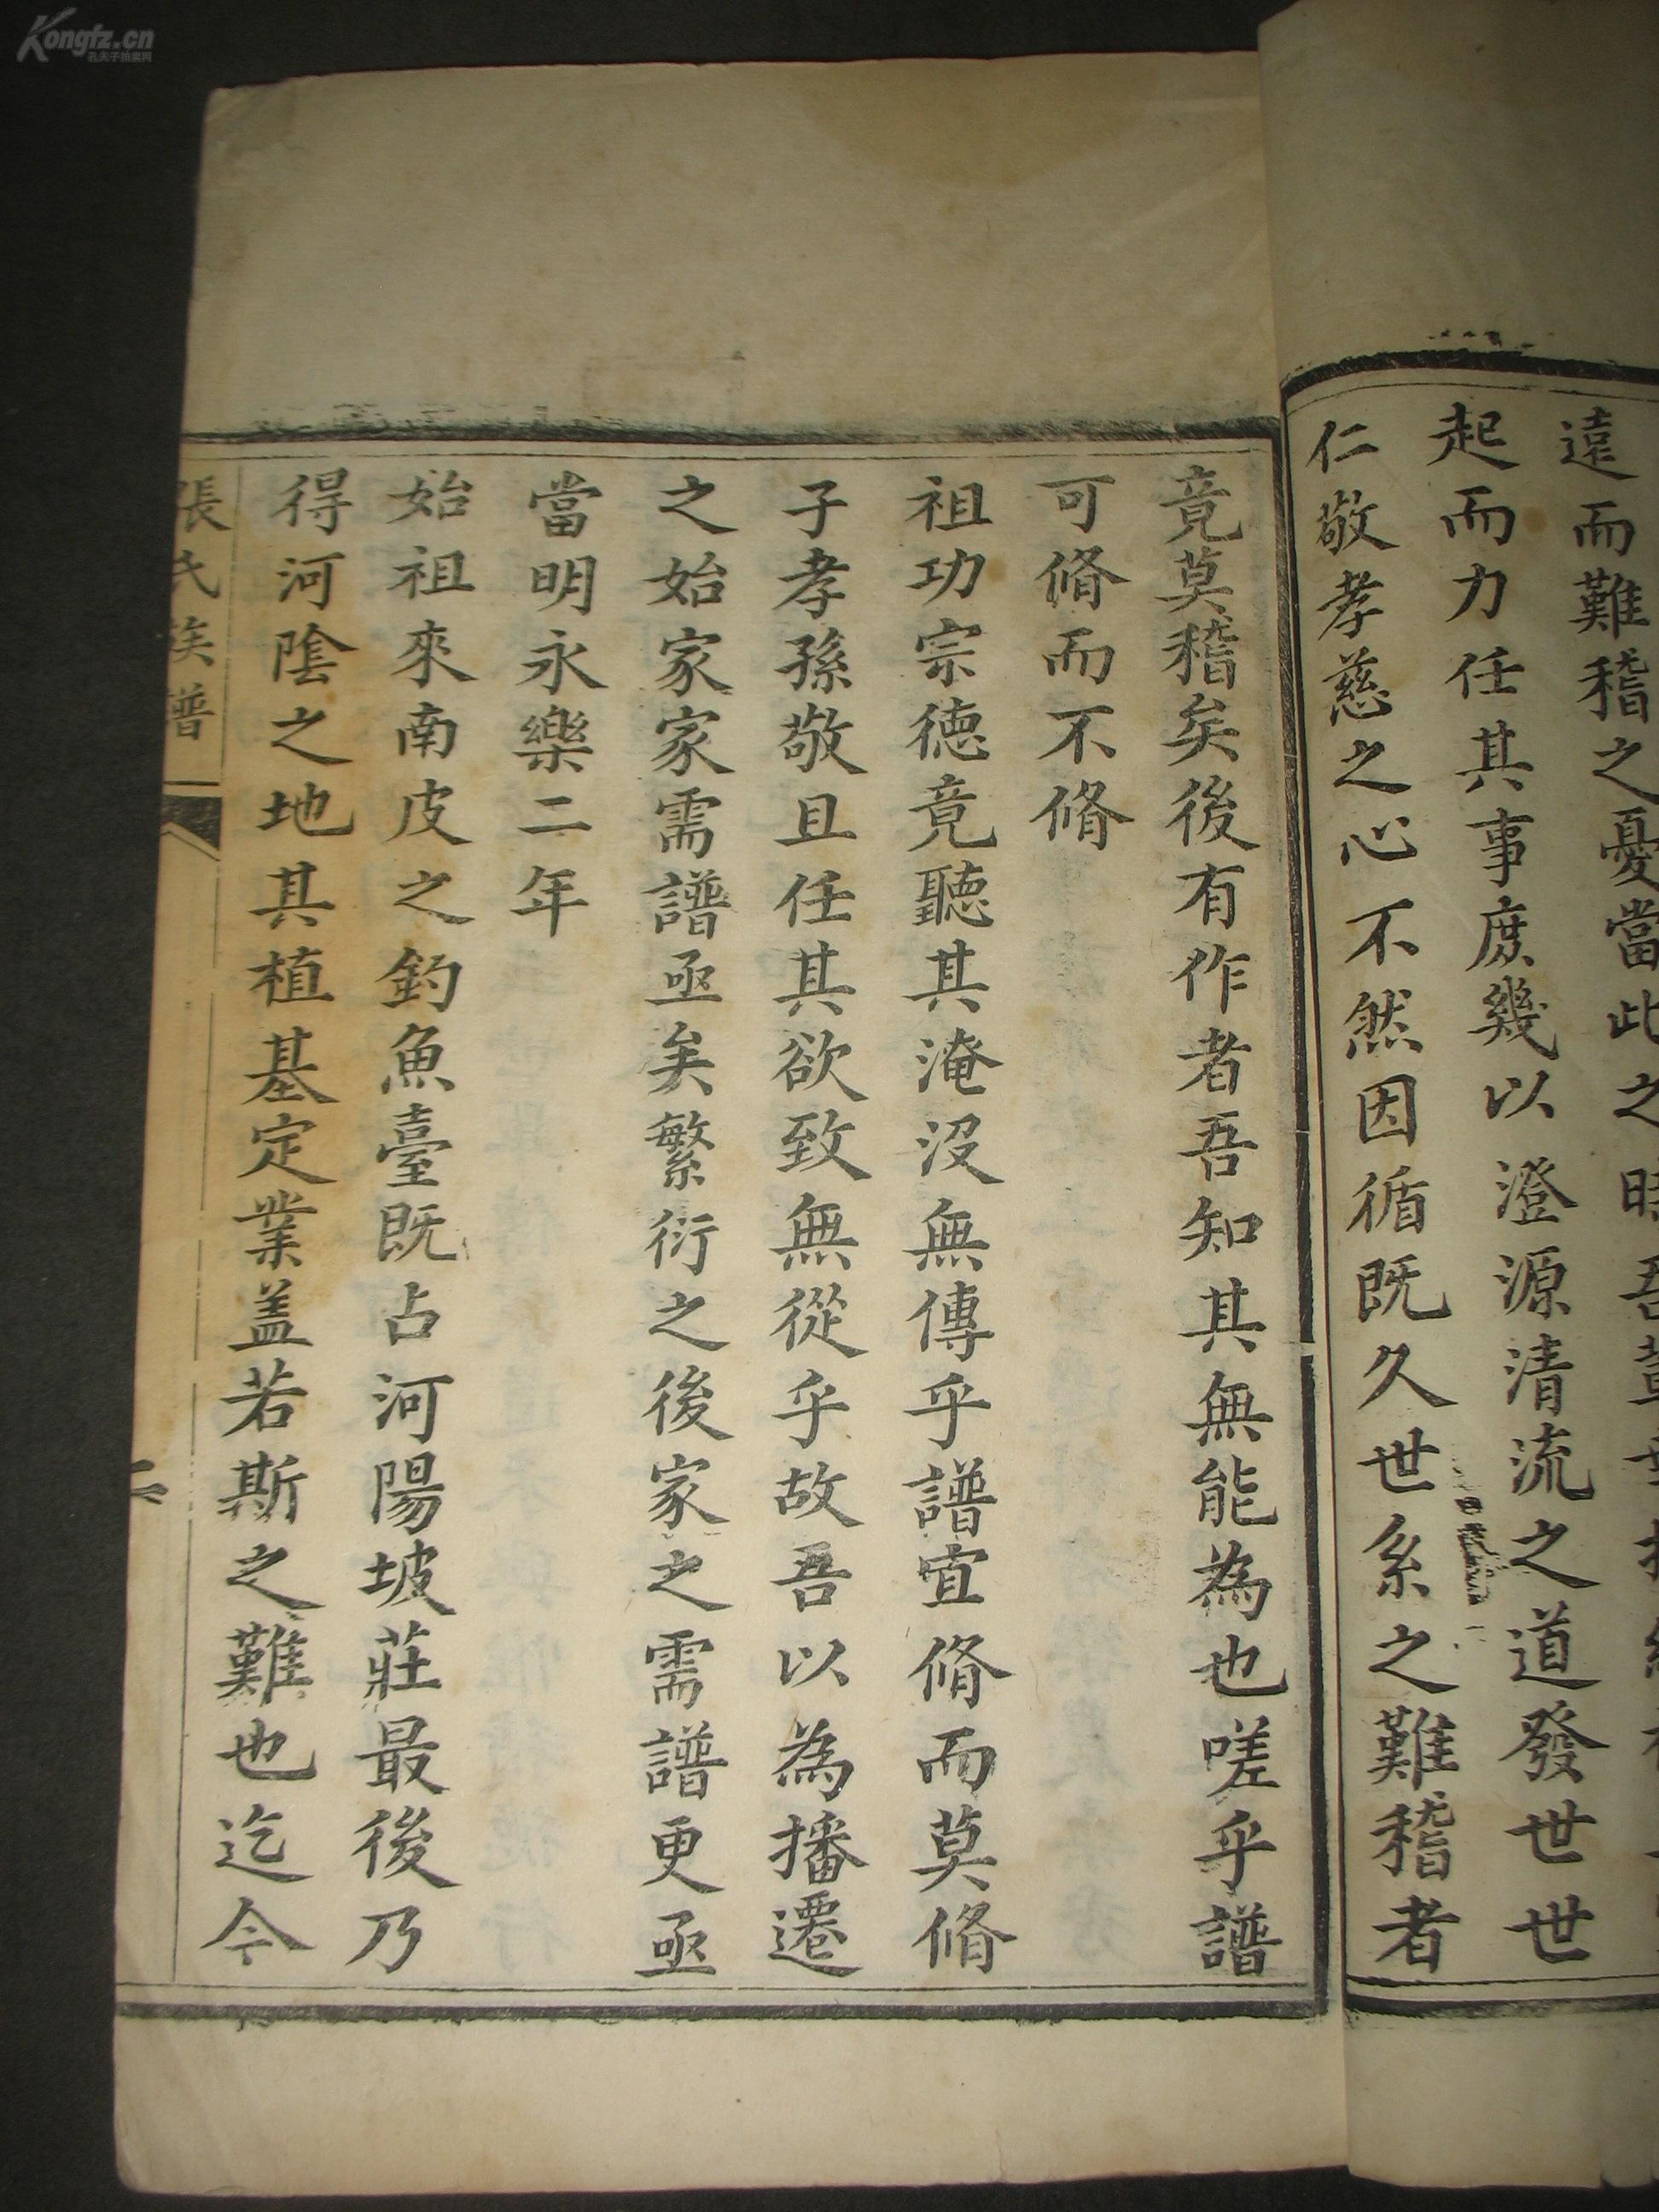 遠而難稽之憂當此之時吾
起而力任其事庶幾以澄源清流之道發世世
仁敬孝慈之心不然因循既久世系之難稽者
竟莫稽矣後有作者吾知其無能為也嗟乎譜
可脩而不脩
祖功宗德竟聽其淹沒無傳乎譜宜脩而莫脩
子孝孫敬且任其欲致無從乎故吾以為播遷
之始家家需譜亟矣繁衍之後家之需譜更亟
當明永樂二年
始祖來南皮之釣魚臺既占河陽坡莊最後乃
得河陰之地其植基定業盖若斯之難也迄今
張氏族譜
二
Kongfz.cn
孔夫子拍卖网